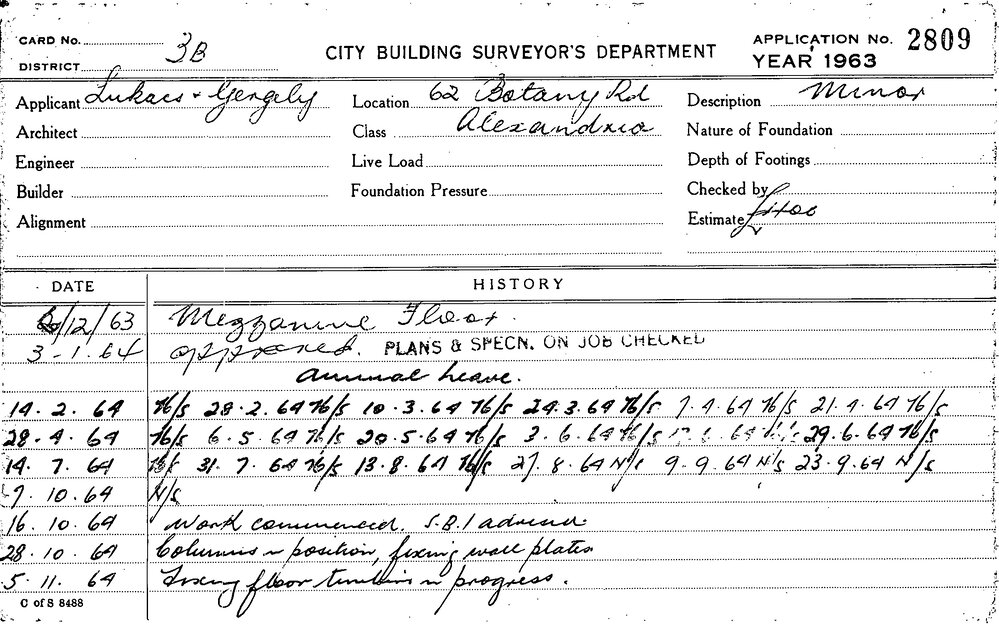 CARD No. 3B
DISTRICT
CITY BUILDING SURVEYOR'S DEPARTMENT
APPLICATION No. 2809
YEAR 1963
Applicant Lukacs + Gergely
Location 62 Botany Rd
Description Minor
Architect
Class Alexandria
Nature of Foundation
Engineer
Live Load
Depth of Footings
Builder
Foundation Pressure
Checked by
Alignment
Estimate
DATE HISTORY
/12/63 Mezzanine Floor.
3-1.64 approved. PLANS & SPECN. ON JOB CHECKED
Annual Leave.
14.2.64 N/S 28.2.64 N/S 10.3.64 N/S 24.3.64 N/S 7.4.64 N/S 21.4.64 N/S
28.4.64 N/S 6.5.64 N/S 20.5.64 N/S 3.6.64 N/S 29.6.64 N/S
14.7.64 N/S 31.7.64 N/S 13.8.64 N/S 27.8.64 N/S 9.9.64 N/S 23.9.64 N/S
7.10.64 N/S
16.10.64 Work commenced. S.B.I advised
28.10.64 Columns in position, fixing wall plates
5.11.64 Fixing floor timbers in progress.
C of S 8488